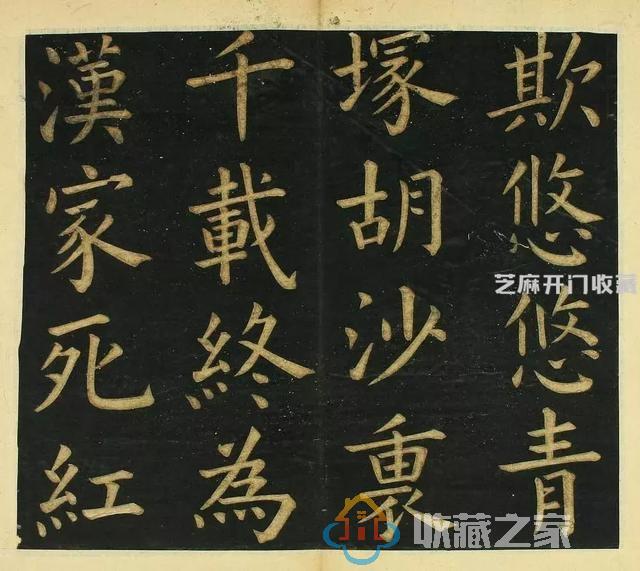 欺悠悠青
塚胡沙裏
千載終為
漢家死紅
芝麻开门收藏
收藏之家